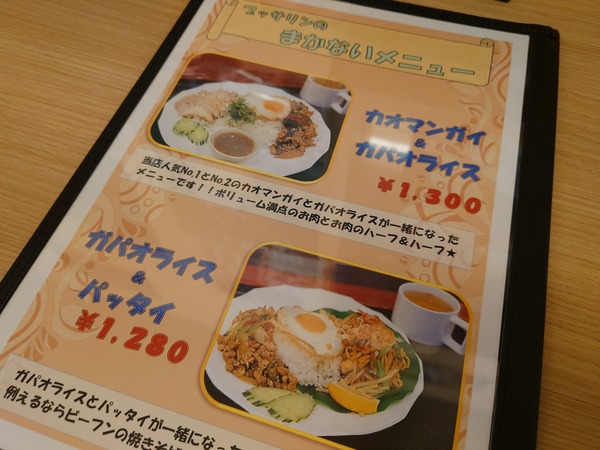 プッサリンの
まかないメニュー
カオマンガイ
&
ガパオライス
¥1,300
当店人気No.1とNo.2のカオマンガイとガパオライスが一緒になった
メニューです!!ボリューム満点のお肉とお肉のハーフ&ハーフ★
ガパオライス
&
パッタイ
¥1,280
ガパオライスとパッタイが一緒になった
例えるならビーフンの焼きそば